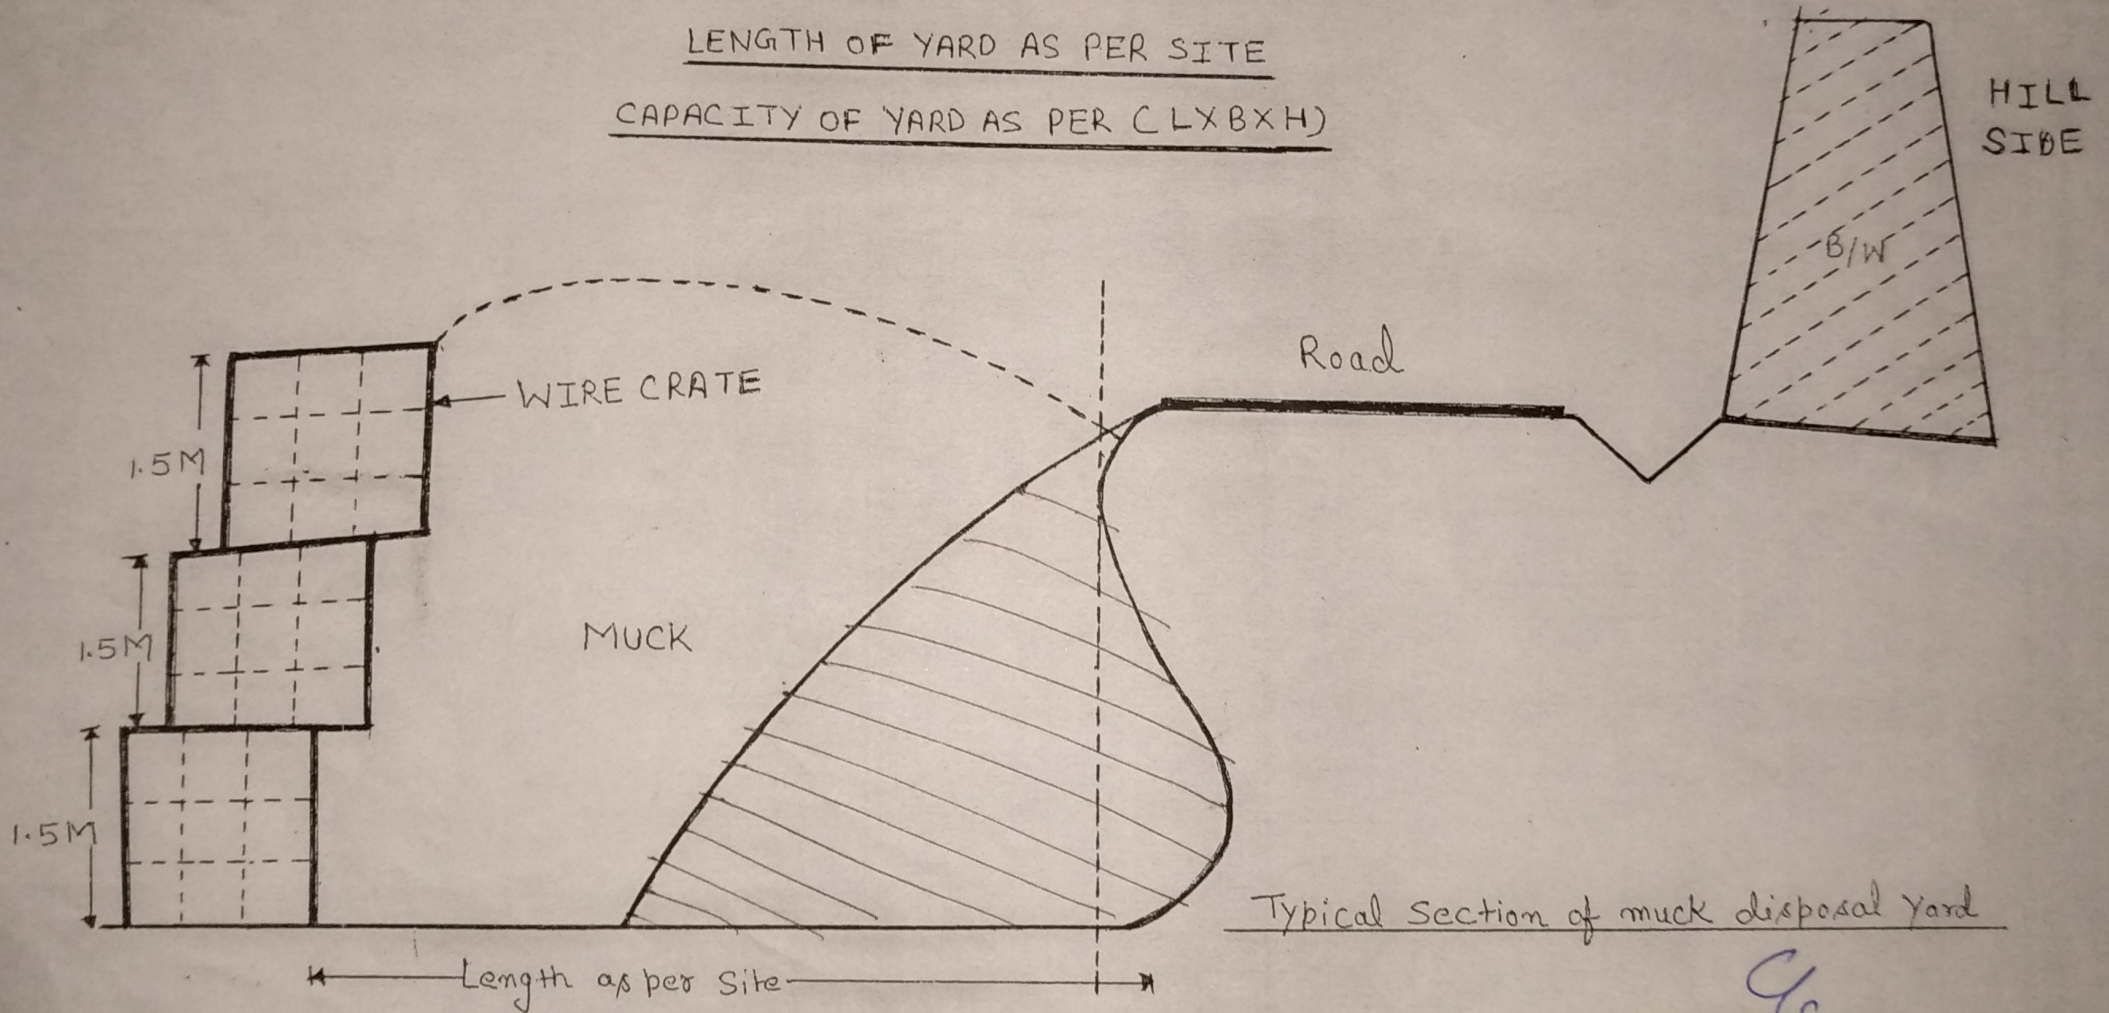 LENGTH OF YARD AS PER SITE
CAPACITY OF YARD AS PER (LXBXH)
HILL
SIDE
B/W
Road
WIRE CRATE
1.5M
1.5M
MUCK
1.5M
Typical Section of muck disposal Yard
Length as per Site